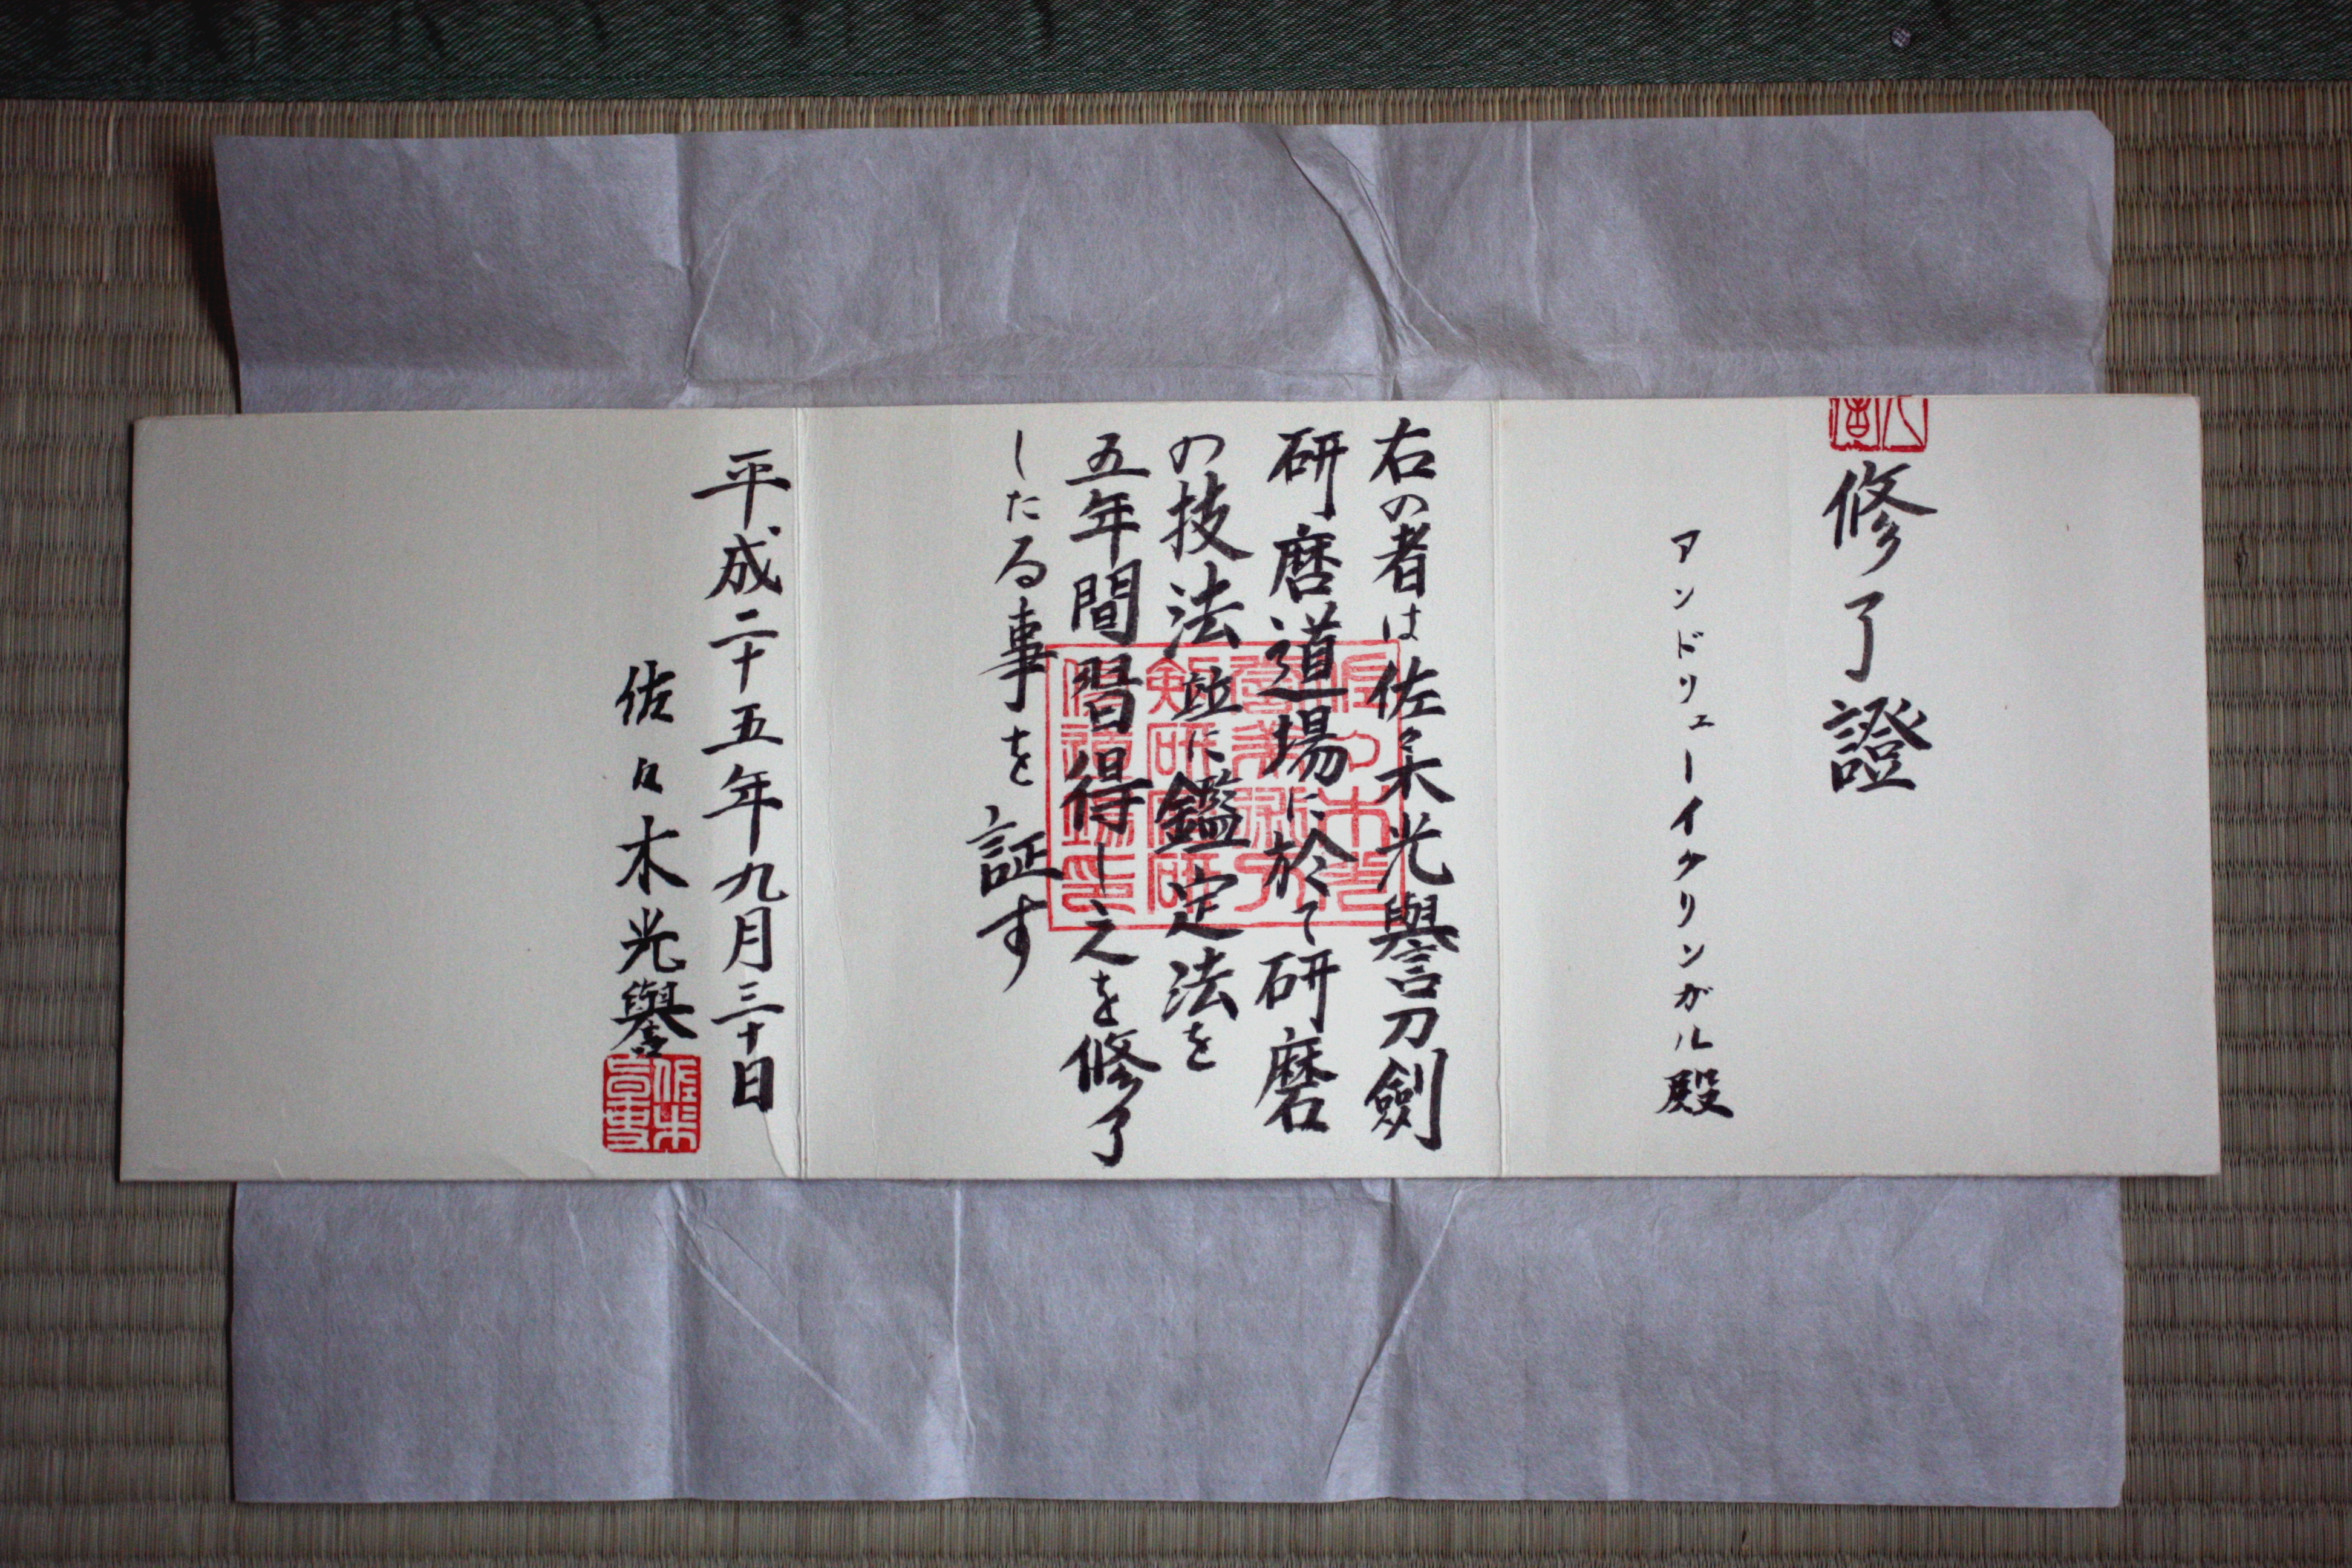 修了證
アンドリューイクリンガル殿
右の者は佐々木光譽刀劍
研磨道場に於て研磨
の技法並に鑑定法を
五年間習得し之を修了
したる事を証す
平成二十五年九月三十日
佐々木光譽